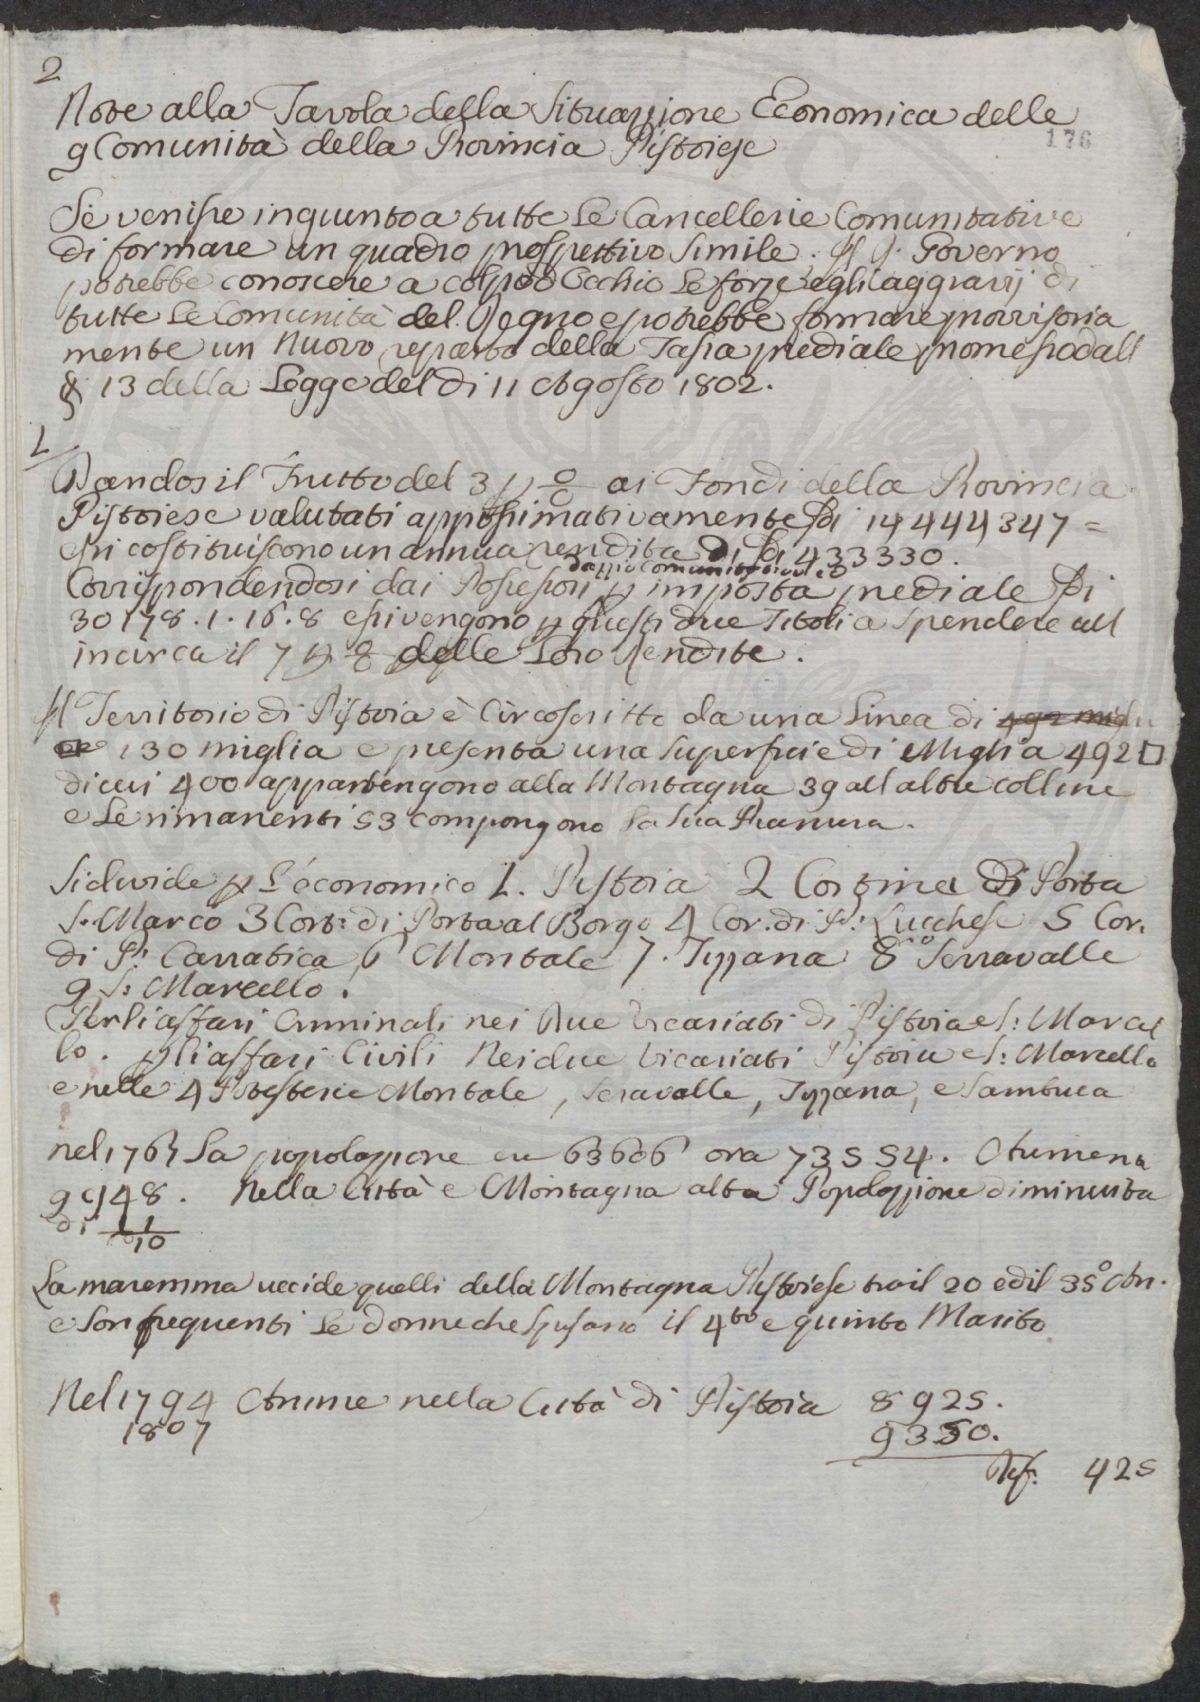 2
Note alla Tavola della Situazione Economica delle
9 Comunità della Provincia Pistoiese
176
Se venisse ingiunto a tutte le Cancellerie Comunitative
di formare un quadro prospettivo simile. Il R. Governo
potrebbe conoscere a colpo d'Occhio le forze e gli aggravj di
tutte le Comunità del Regno e potrebbe formare provvisoria
mente un nuovo reparto della Tassa prediale promesso dall
§ 13 della Legge del dì 11 Agosto 1802.
1
Dandosi il Frutto del 3 p % ai Fondi della Provincia
Pistoiese valutati approssimativamente Sdi 14444347=
essi costituiscono un annua rendita di Sdi 433330.
Corrispondendosi dai Possessori p imposta prediale Sdi
30178.1.16.8 essi vengono p questi due Titoli a spendere all
incirca il 7 p % delle loro Rendite.
Il Territorio di Pistoia è Circoscritto da una Linea di 492 miglia
130 miglia e presenta una superficie di Miglia 492 □
di cui 400 appartengono alla Montagna 39 all altre colline
e le rimanenti 53 compongono la sua Pianura.
Si divide p l'economico 1. Pistoia 2 Cortina di Porta
S. Marco 3 Cort: di Porta al Borgo 4 Cor. di P: Lucchese 5 Cor.
di P: Carratica 6 Montale 7. Tizzana 8 Serravalle
9 S: Marcello.
Per li affari Criminali nei Due Vicariati di Pistoia e S: Marcel
lo. p li affari Civili Nei due Vicariati Pistoia e S: Marcello
e nelle 4 Potesterie Montale, Seravalle, Tizzana, e Sambuca
nel 1767 la popolazione era 63606 ora 73554. Aumento
9948. Nella Città e Montagna alta Popolazione diminuita
di 1/10
La maremma uccide quelli della Montagna Pistoiese tra il 20 ed il 35° An.
e son frequenti le donne che sposano il 4to e quinto Marito
Nel 1794 Anime nella Città di Pistoia 8925.
1807 9350.
Dif: 425